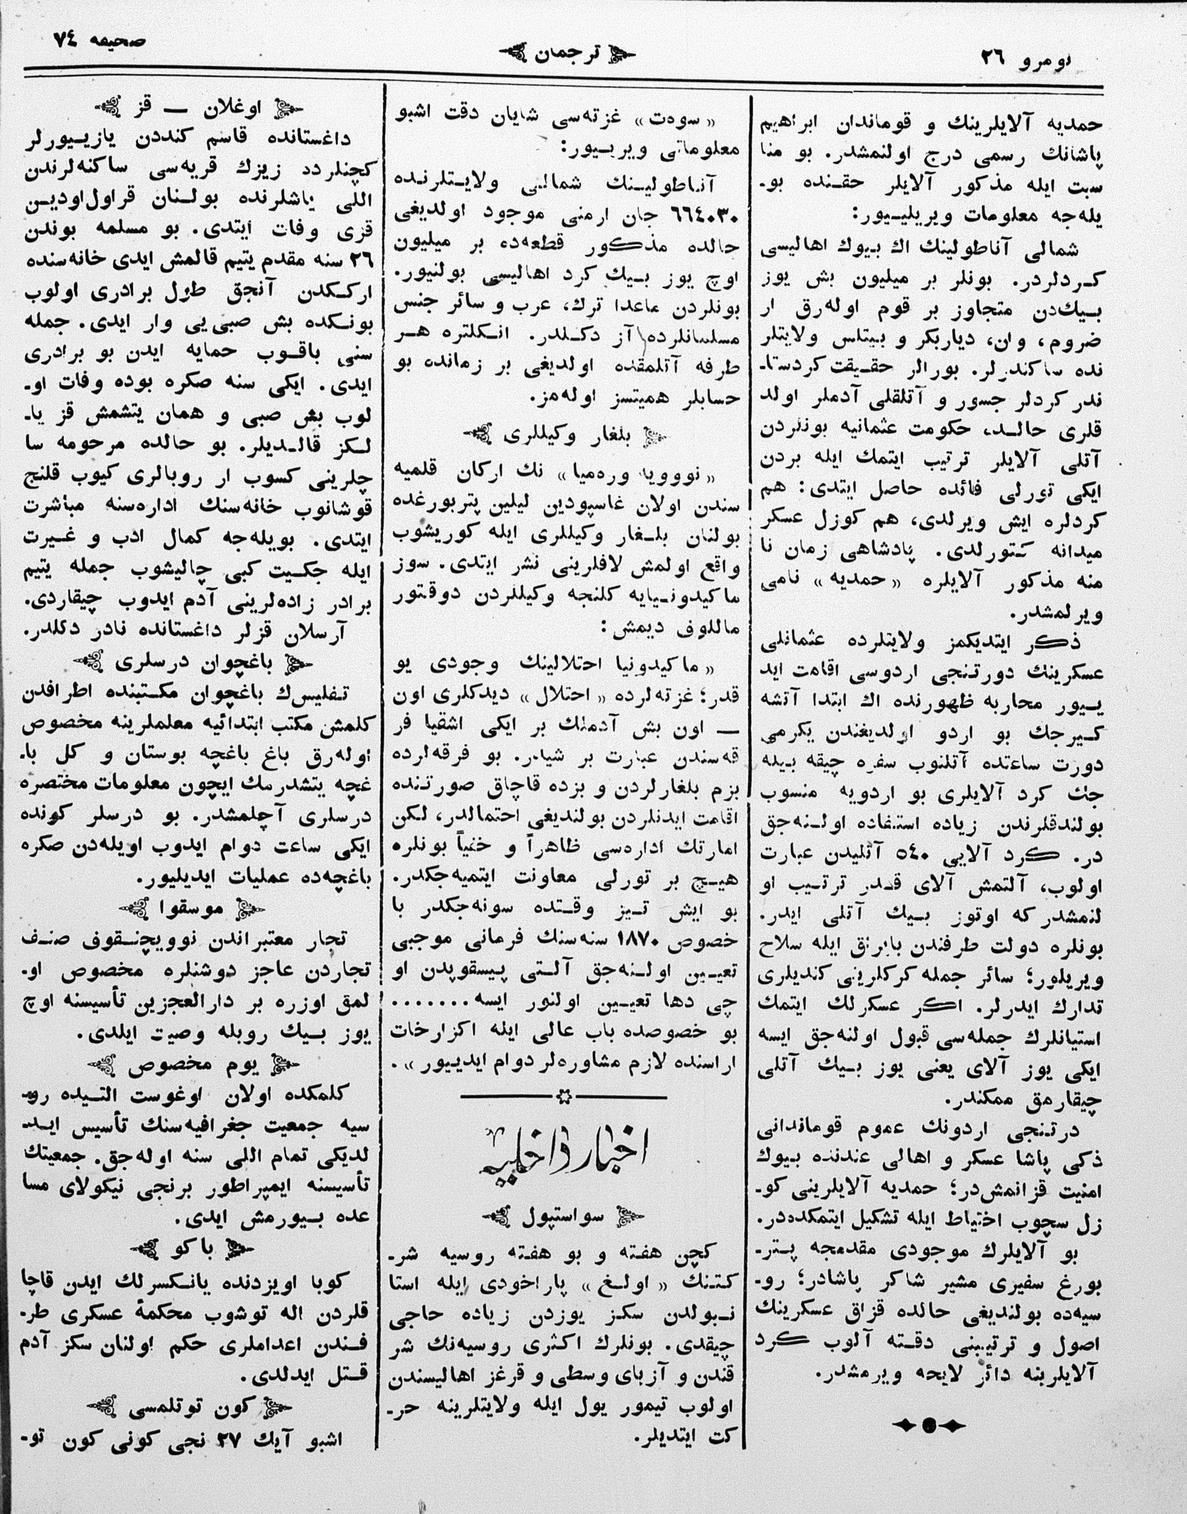 نومرو ٢٦
ترجمان
صحيفه ٧٤
حمديه آلايلرينك و قوماندان ابراهيم
پاشانك رسمى درج اولنمشدر. بو منا
سبت ايله مذكور آلايلر حقنده بو-
يله‌جه معلومات ويريلييور:
شمالى آناطولينك اك بيوك اهاليسى
كردلردر. بونلر بر ميليون بش يوز
بيك‌دن متجاوز بر قوم اوله‌رق ار
ضروم، وان، دياربكر و بيتلس ولايتلر
نده ساكندرلر. بورالر حقيقت كردستا-
ندر كردلر جسور و آتلقلى آدملر اولد
قلرى حالده، حكومت عثمانيه بونلردن
آتلى آلايلر ترتيب ايتمك ايله بردن
ايكى تورلى فائده حاصل ايتدى: هم
كردلره ايش ويرلدى، هم كوزل عسكر
ميدانه كتورلدى. پادشاهى زمان نا
منه مذكور آلايلره «حمديه» نامى
ويرلمشدر.
ذكر ايتديكمز ولايتلرده عثمانلى
عسكرينك دورتنجى اردوسى اقامت ايد
ييور محاربه ظهورنده اك ابتدا آتشه
كيرجك بو اردو اولديغندن يكرمى
دورت ساعتده آتلنوب سفره چيقه بيله
جك كرد آلايلرى بو اردويه منسوب
بولندقلرندن زياده استفاده اولنه‌جق
در. كرد آلايى ٥٤٠ آتليدن عبارت
اولوب، آلتمش آلاى قدر ترتيب او
لنمشدر كه اوتوز بيك آتلى ايدر.
بونلره دولت طرفندن بايراق ايله سلاح
ويريلور؛ سائر جمله كركلرينى كنديلرى
تدارك ايدرلر. اكر عسكرلك ايتمك
استيانلرك جمله‌سى قبول اولنه‌جق ايسه
ايكى يوز آلاى يعنى يوز بيك آتلى
چيقارمق ممكندر.
درتنجى اردونك عموم قوماندانى
ذكى پاشا عسكر و اهالى عندنده بيوك
امنيت قزانمش‌در؛ حمديه آلايلرينى كو-
زل سچوب اختياط ايله تشكيل ايتمكده‌در.
بو آلايلرك موجودى مقدمجه پتر-
بورغ سفيرى مشير شاكر پاشادر؛ رو-
سيه‌ده بولنديغى حالده قزاق عسكرينك
اصول و ترتيبنى دقته آلوب كرد
آلايلرينه دائر لايحه ويرمشدر.
«سوەت» غزته‌سى شايان دقت اشبو
معلوماتى ويريور:
آناطولينك شمالى ولايتلرنده
٦٦٤٠٣٠ جان ارمنى موجود اولديغى
حالده مذكور قطعه‌ده بر ميليون
اوچ يوز بيك كرد اهاليسى بولنيور.
بونلردن ماعدا ترك، عرب و سائر جنس
مسلمانلرده آز دكلدر. انكلتره هر
طرفه آتلمقده اولديغى بر زمانده بو
حسابلر هميتسز اوله‌مز.
بلغار وكيللرى
«نوووێه ورەميا» نك اركان قلميه
سندن اولان غاسپودين ليلين پتربورغده
بولنان بلغار وكيللرى ايله كوريشوب
واقع اولمش لافلرينى نشر ايتدى. سوز
ماكيدونيايه كلنجه وكيللردن دوقتور
ماللوف ديمش:
«ماكيدونيا احتلالينك وجودى يو
قدر؛ غزته‌لرده «احتلال» ديدكلرى اون
— اون بش آدمنك بر ايكى اشقيا فر
قه‌سندن عبارت بر شيدر. بو فرقه‌لرده
بزم بلغارلردن و بزده قاچاق صورتنده
اقامت ايدنلردن بولنديغى احتمالدر، لكن
امارتك اداره‌سى ظاهراً و خفياً بونلره
هيچ بر تورلى معاونت ايتميه‌جكدر.
بو ايش تيز وقتده سونه‌جكدر با
خصوص ١٨٧٠ سنه‌سنك فرمانى موجبى
تعيين اولنه‌جق آلتى پيسقوپدن او
چى دها تعيين اولنور ايسه.......
بو خصوصده باب عالى ايله اكزارخات
اراسنده لازم مشاوره‌لر دوام ايدييور».
اخبار داخليه
سواستپول
كچن هفته و بو هفته روسيه شر-
كتنك «اولغ» پاراخودى ايله استا
نبولدن سكز يوزدن زياده حاجى
چيقدى. بونلرك اكثرى روسيه‌نك شر
قندن و آزياى وسطى و قرغز اهاليسندن
اولوب تيمور يول ايله ولايتلرينه حر-
كت ايتديلر.
اوغلان — قز
داغستانده قاسم كنددن يازييورلر
كچنلردە زيزك قريه‌سى ساكنه‌لرندن
اللى ياشلرنده بولنان قراول‌اودين
قزى وفات ايتدى. بو مسلمه بوندن
٢٦ سنه مقدم يتيم قالمش ايدى خانه‌سنده
اركدن آنجق طول برادرى اولوب
بونكده بش صبى‌يى وار ايدى. جمله
سنى باقوب حمايه ايدن بو برادرى
ايدى. ايكى سنه صكره بوده وفات او-
لوب بش صبى و همان يتشمش قز يا-
لكز قالديلر. بو حالده مرحومه سا
چلرينى كسوب ار روبالرى كيوب قلنج
قوشانوب خانه‌سنك اداره‌سنه مباشرت
ايتدى. بويله‌جه كمال ادب و غيرت
ايله جكيت كبى چاليشوب جمله يتيم
برادر زاده‌لرينى آدم ايدوب چيقاردى.
آرسلان قزلر داغستانده نادر دكلدر.
باغچوان درسلرى
تفليسك باغچوان مكتبنده اطرافدن
كلمش مكتب ابتدائيه معلملرينه مخصوص
اوله‌رق باغ باغچه بوستان و كل با-
غچه يتشدرمك ايچون معلومات مختصره
درسلرى آچلمشدر. بو درسلر كونده
ايكى ساعت دوام ايدوب اويله‌دن صكره
باغچه‌ده عمليات ايديليور.
موسقوا
تجار معتبراندن نوويچنقوف صنف
تجاردن عاجز دوشنلره مخصوص او-
لمق اوزره بر دارالعجزين تأسيسنه اوچ
يوز بيك روبله وصيت ايلدى.
يوم مخصوص
كلمكده اولان اوغوست التيده رو-
سيه جمعيت جغرافيه‌سنك تأسيس ايد-
لديكى تمام اللى سنه اوله‌جق. جمعيتك
تأسيسنه ايمپراطور برنجى نيكولاى مسا
عده بيورمش ايدى.
باكو
كوبا اويزدنده يانكسرلك ايدن قاچا
قلردن اله توشوب محكمۀ عسكرى طر-
فندن اعداملرى حكم اولنان سكز آدم
قتل ايدلدى.
كون توتلمسى
اشبو آيك ٢٧ نجى كونى كون تو-